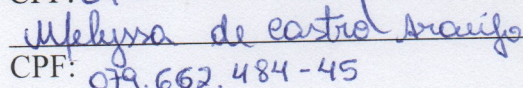 Melyssa de castro Araújo
CPF: 079.662.484-45